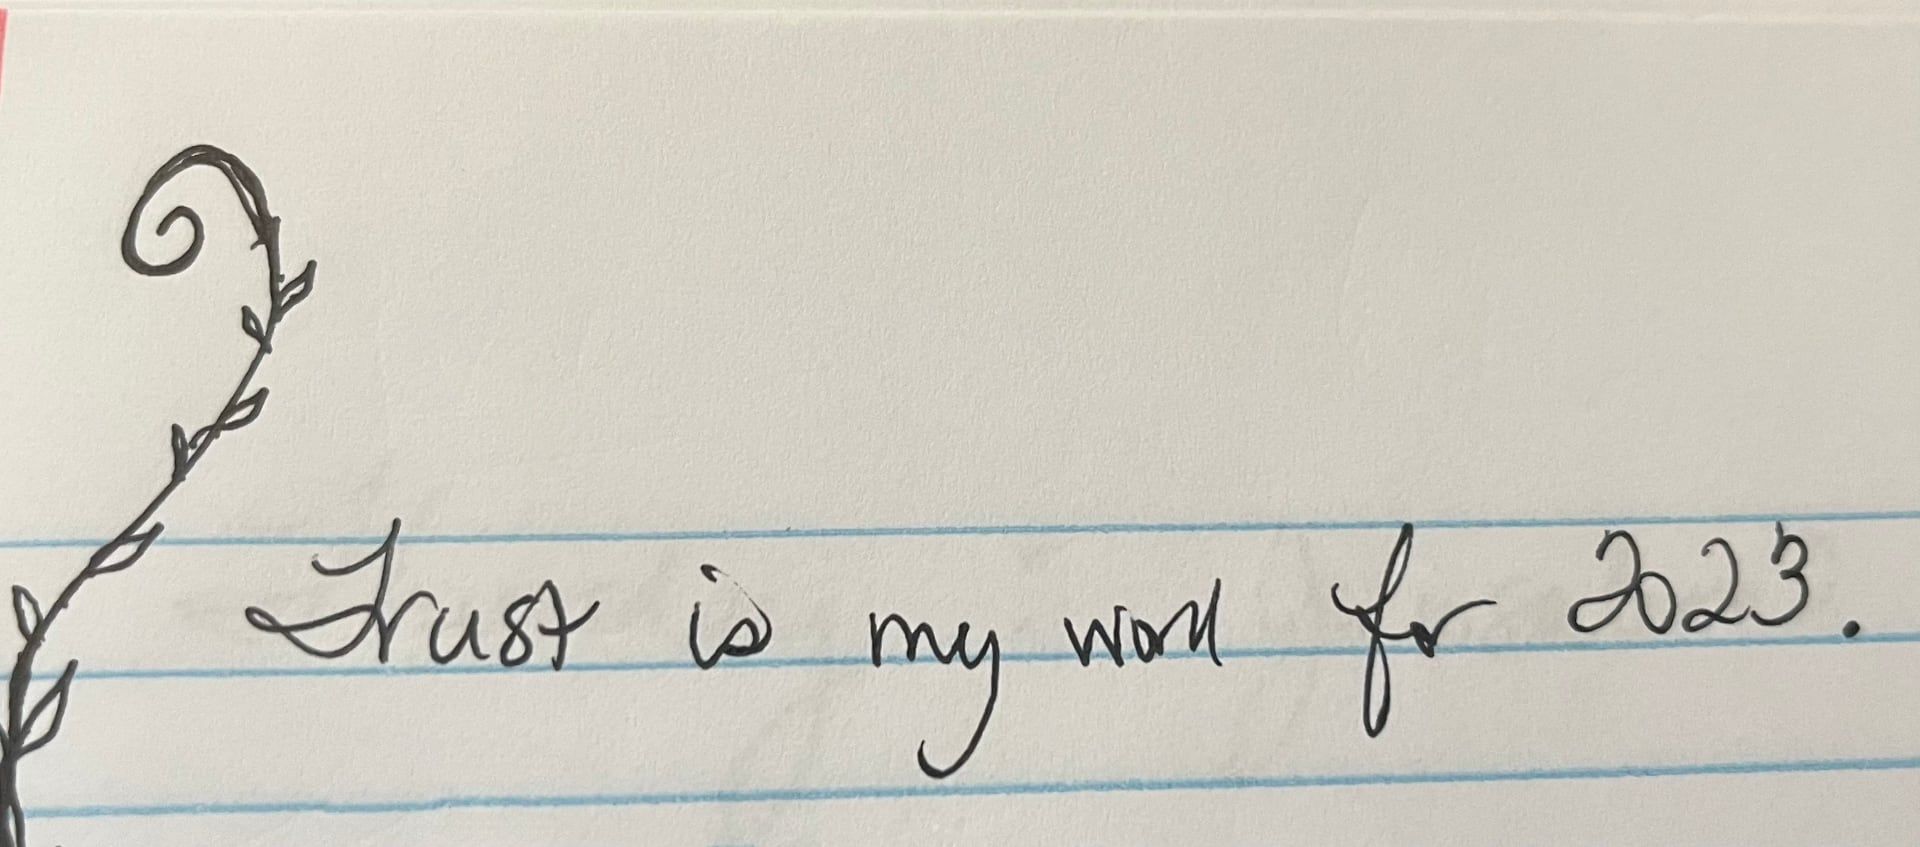 Trust is my word for 2023.